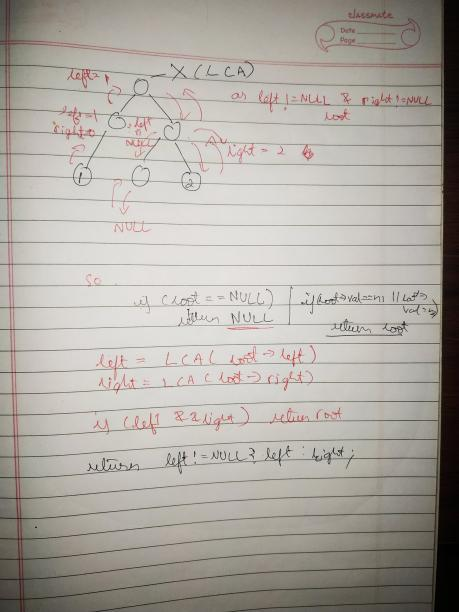 classmate
Date
Page
left = 1
X (LCA)
as left != NULL & right != NULL
root
left = 1
right = 0
left
NULL
right = 2
1
2
NULL
so
if (root == NULL)
return NULL
if root->val == n1 || root->
val =
return root
left = LCA ( root -> left )
right = LCA ( root -> right )
if (left && right) return root
return left != NULL ? left : right ;